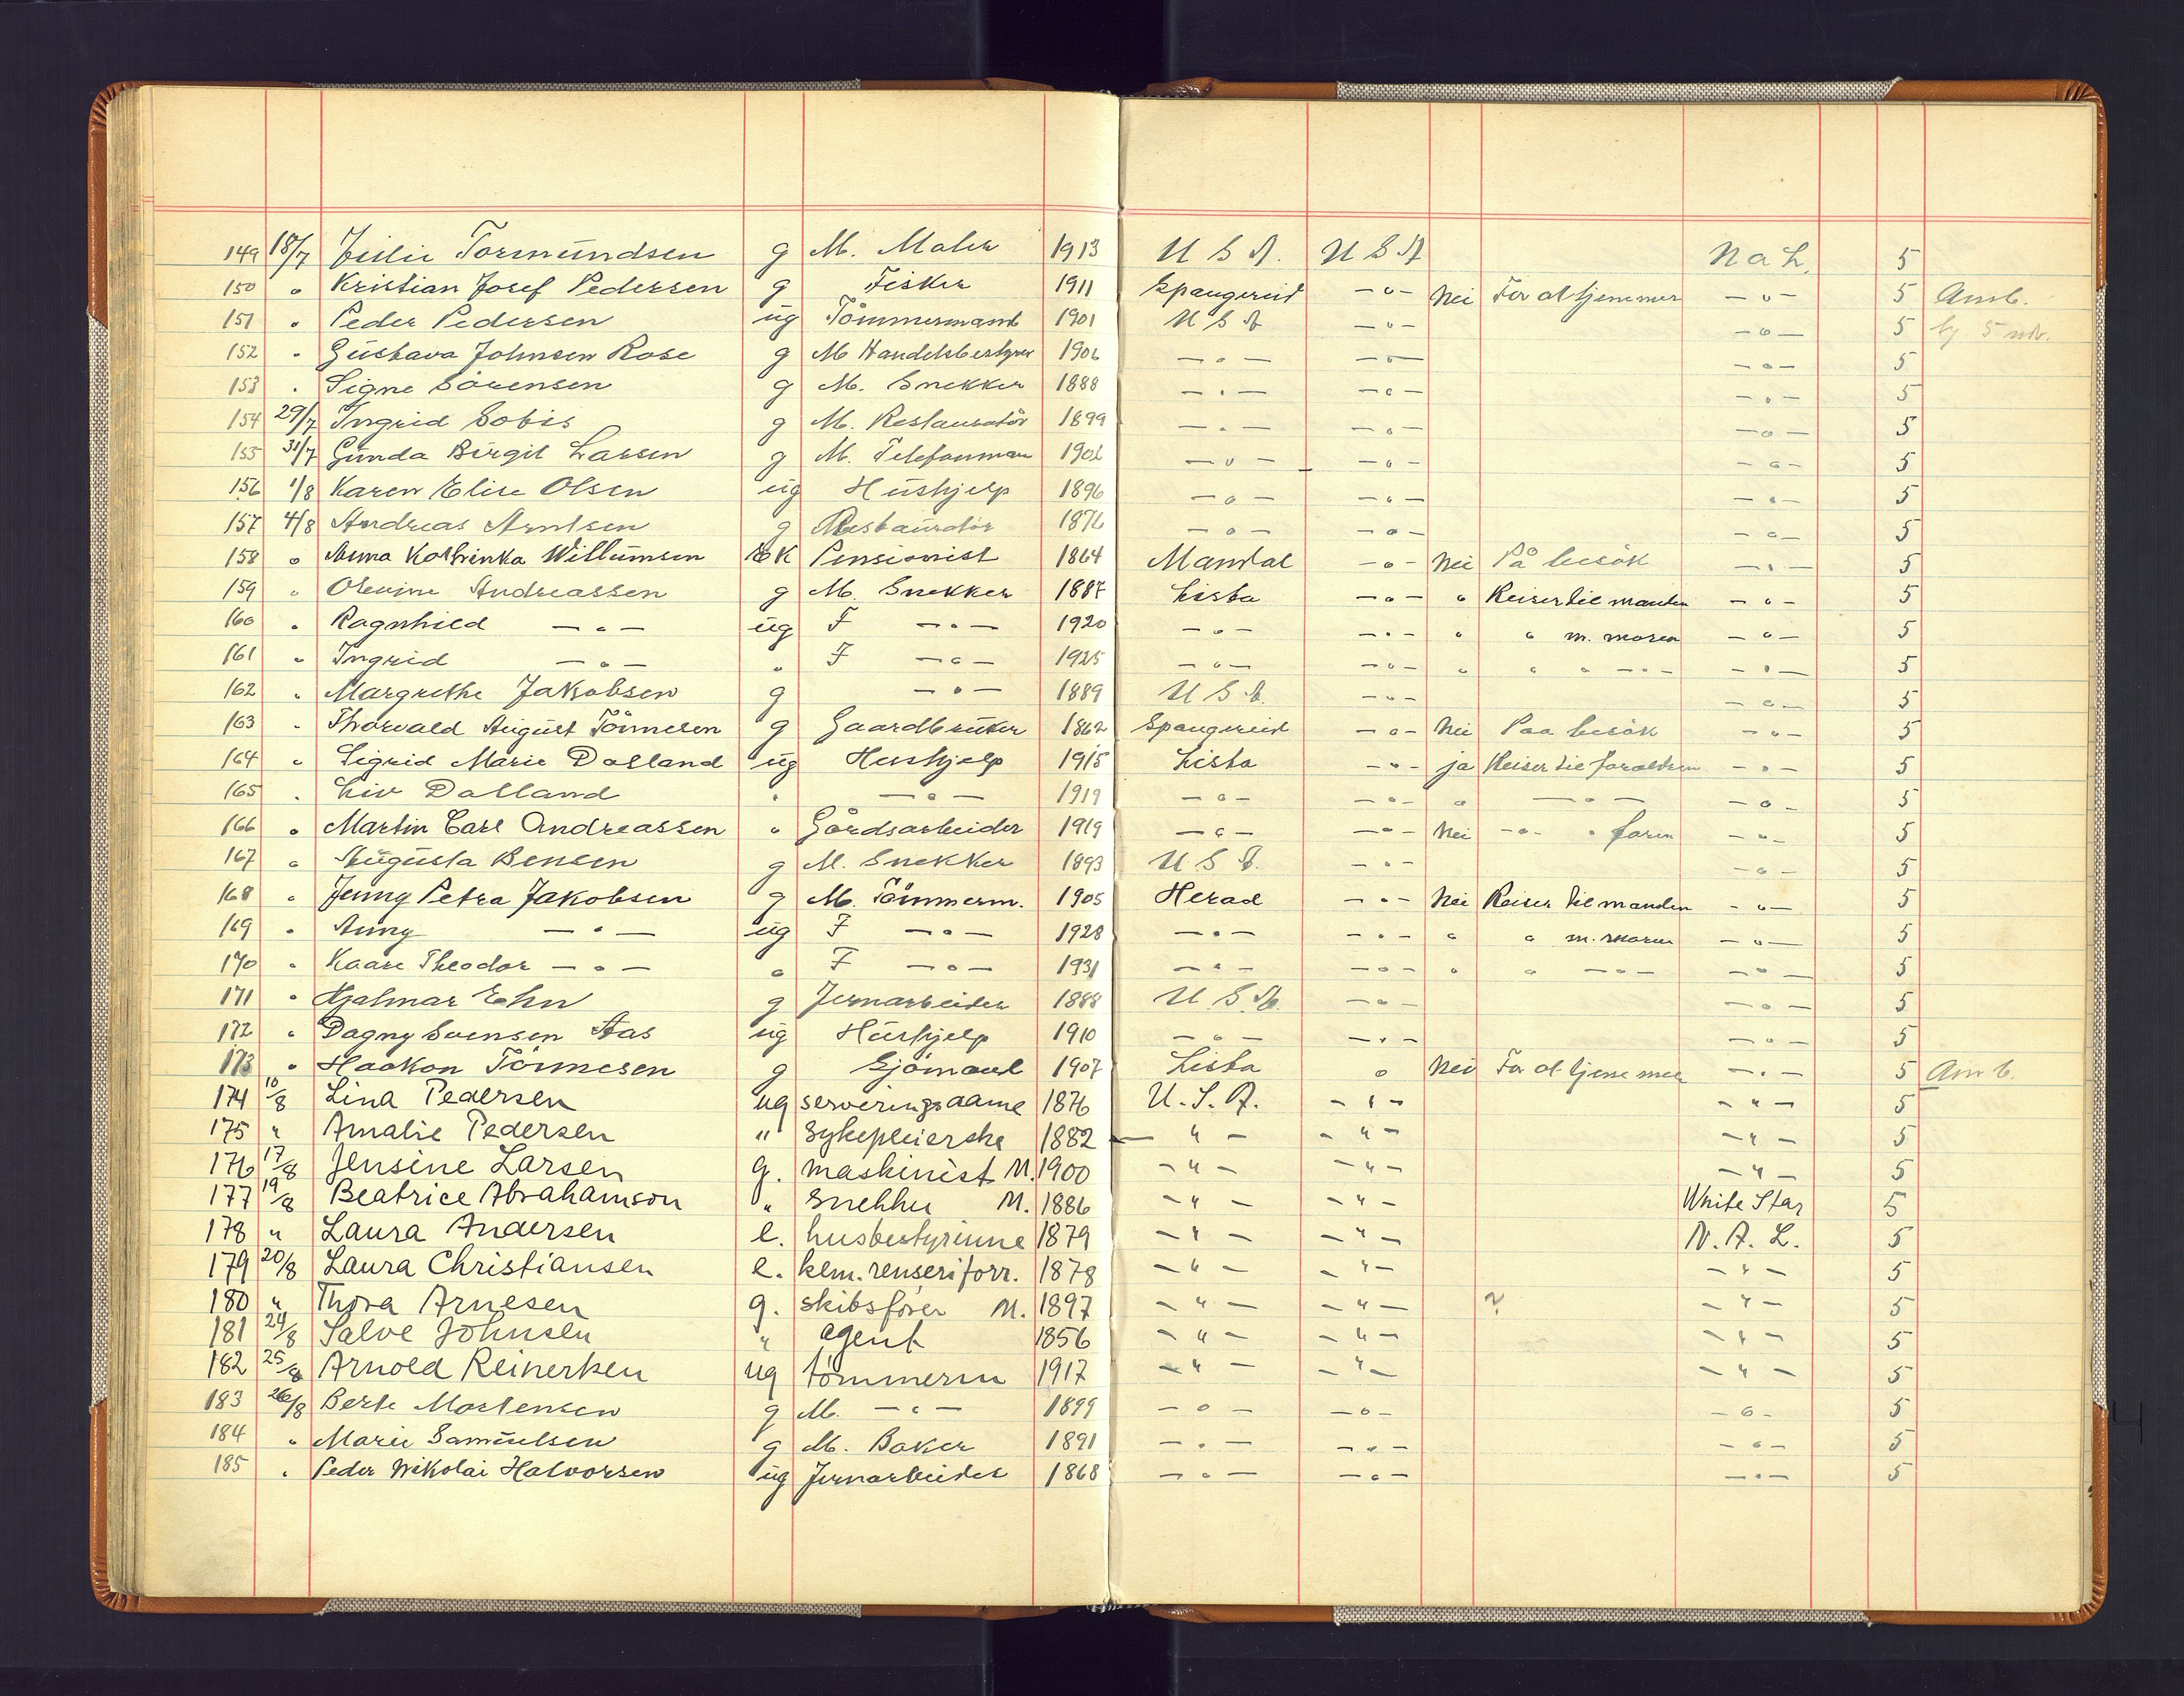 149 18/7 Tormundsen g M. Maler 1913 U S A. U S A N a L. 5
150 " Kristian Josef Pedersen g Fisker 1911 Spangereid -"- Nei For at tjene mer -"- 5 Amb.
151 " Peder Pedersen ug Tömmermand 1901 U S A -"- -"- 5
152 " Gustava Johnsen Rose g M Handelsbestyrer 1906 -"- -"- -"- 5
153 " Signe Sörensen g M. Snekker 1888 -"- -"- -"- 5
154 29/7 Ingrid Sobis g M. Restauratör 1899 -"- -"- -"- 5
155 31/7 Gunda Birgit Larsen g M. Telefonman -"- -"- -"- 5
156 1/8 Karen Elise Olsen ug Hushjelp 1896 -"- -"- -"- 5
157 4/8 Andreas Arntsen g Restauratör 1876 -"- -"- -"- 5
158 " Anna Kathinka Willumsen EK Pensionist 1864 Mandal -"- Nei På besök -"- 5
159 " Olevine Andreassen g M. Snekker 1887 Lista -"- " Reiser til manden -"- 5
160 " Ragnhild -"- ug F -"- 1920 -"- -"- " " m. moren -"- 5
161 " Ingrid -"- " F -"- 1925 -"- -"- " " " -"- -"- 5
162 " Margrethe Jakobsen g -"- 1889 U S A. -"- -"- 5
163 " Thorvald August Tönnesen g Gaardbruker 1862 Spangereid -"- Nei Paa besök -"- 5
164 " Sigrid Marie Dalland ug Hushjelp 1915 Lista -"- ja Reiser til foreldren -"- 5
165 " Liv Dalland " -"- 1919 -"- -"- " -"- -"- 5
166 " Martin Carl Andreassen " Gårdsarbeider 1919 -"- -"- Nei -"- " faren -"- 5
167 " Augusta Bensen g M. Snekker 1893 U S A. -"- -"- 5
168 " Jenny Petra Jakobsen g M. Tömmerm. 1905 Herad -"- Nei Reiser til manden -"- 5
169 " Anny -"- ug F -"- 1928 -"- -"- " " m. moren -"- 5
170 " Kaare Theodor -"- " F -"- 1931 -"- -"- " " -"- -"- 5
171 " Hjalmar Ehn g Jernarbeider 1888 U S A. -"- -"- 5
172 " Dagny Svensen Aas ug Hushjelp 1910 -"- -"- -"- 5
173 " Haakon Tönnesen g Sjömand 1907 Lista " Nei For at tjene mer -"- 5 Amb.
174 10/8 Lina Pedersen ug serveringsdame 1876 U. S. A. -"- -"- 5
175 " Amalie Pedersen " sykepleierske 1882 -"- -"- -"- 5
176 17/8 Jensine Larsen g. maskinist M. 1900 -"- -"- -"- 5
177 19/8 Beatrice Abrahamson " snekker M. 1886 -"- -"- White Star 5
178 " Laura Andersen e. husbestyrinne 1879 -"- -"- N. A. L. 5
179 20/8 Laura Christiansen e. kem. renseriforr. 1878 -"- -"- -"- 5
180 " Thora Arnesen g. skibsfører M. 1897 -"- -"- ? -"- 5
181 24/8 Salve Johnsen " agent 1856 -"- -"- -"- 5
182 25/8 Arnold Reinertsen ug tømmerm 1917 -"- -"- -"- 5
183 26/8 Berte Mortensen g M. -"- 1899 -"- -"- -"- 5
184 " Marie Samuelsen g M. Baker 1891 -"- -"- -"- 5
185 " Peder Nikolai Halvorsen ug Jernarbeider 1868 -"- -"- -"- 5